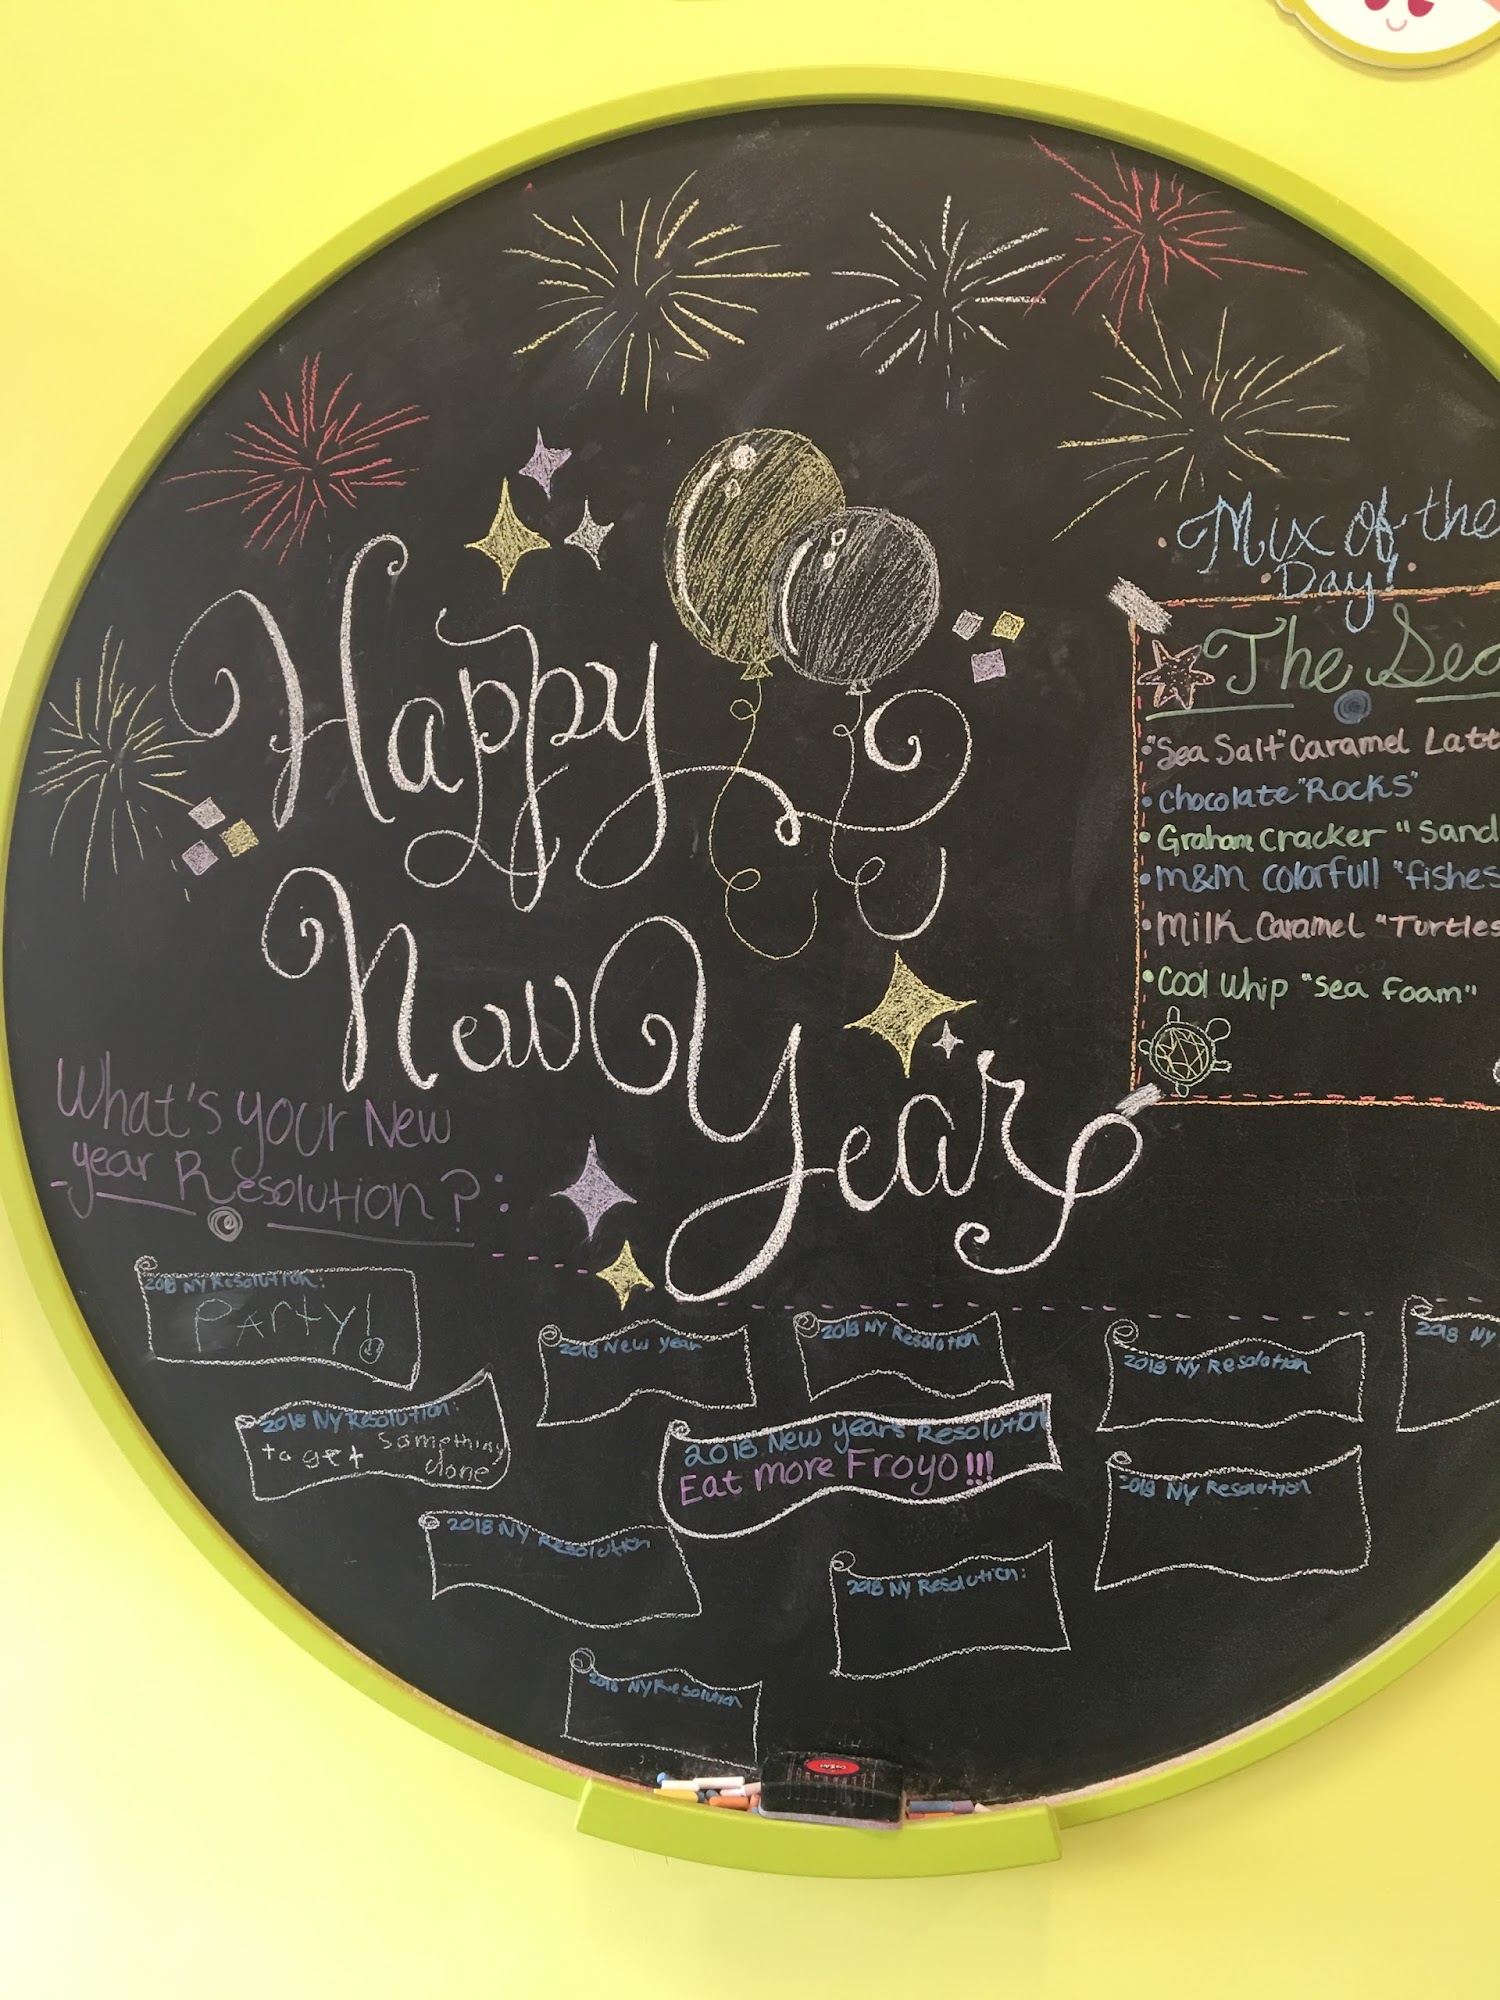 Happy
New
Year
Mix of the
Day!
The Sea
• "Sea Salt" Caramel Latt
• Chocolate "Rocks"
• Graham Cracker "Sand
• M&M Colorfull "fishes
• Milk Caramel "Turtles
• Cool Whip "Sea Foam"
What's your New
year Resolution?:
2018 NY Resolution:
PArty!
2018 NY Resolution:
to get something
done
2018 New year
2018 NY Resolution
2018 New years Resolution
Eat more Froyo!!!
2018 NY Resolution
2018 NY
2018 NY Resolution
2018 NY Resolution
2018 NY Resolution:
2018 NY Resolution